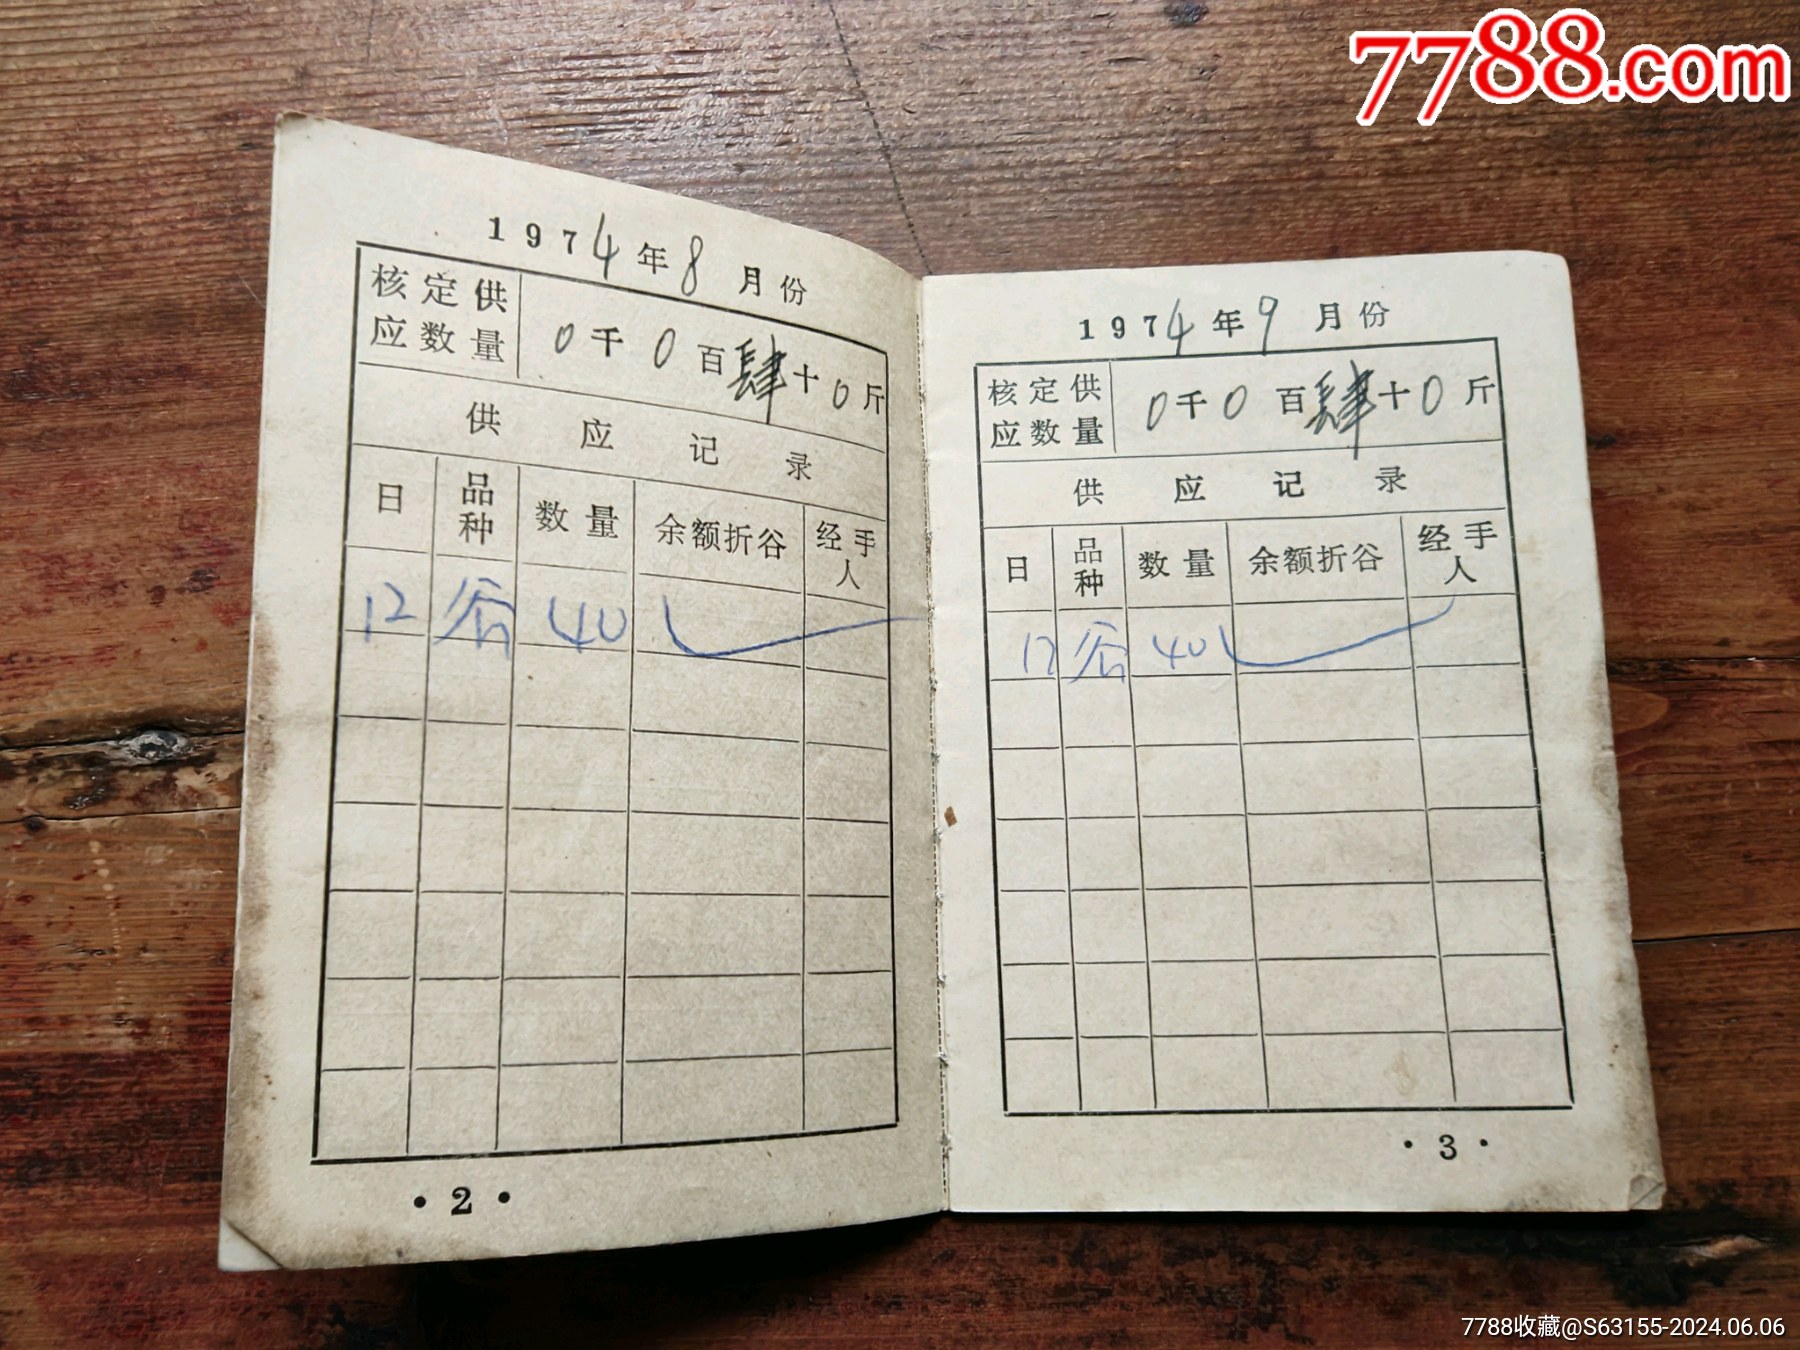 7788.com
1974年8月份
核定供应数量 0千0百肆十0斤
供应记录
日 品种 数量 余额折谷 经手人
12 谷 40
·2·
1974年9月份
核定供应数量 0千0百肆十0斤
供应记录
日 品种 数量 余额折谷 经手人
12 谷 40
·3·
7788收藏@S63155-2024.06.06